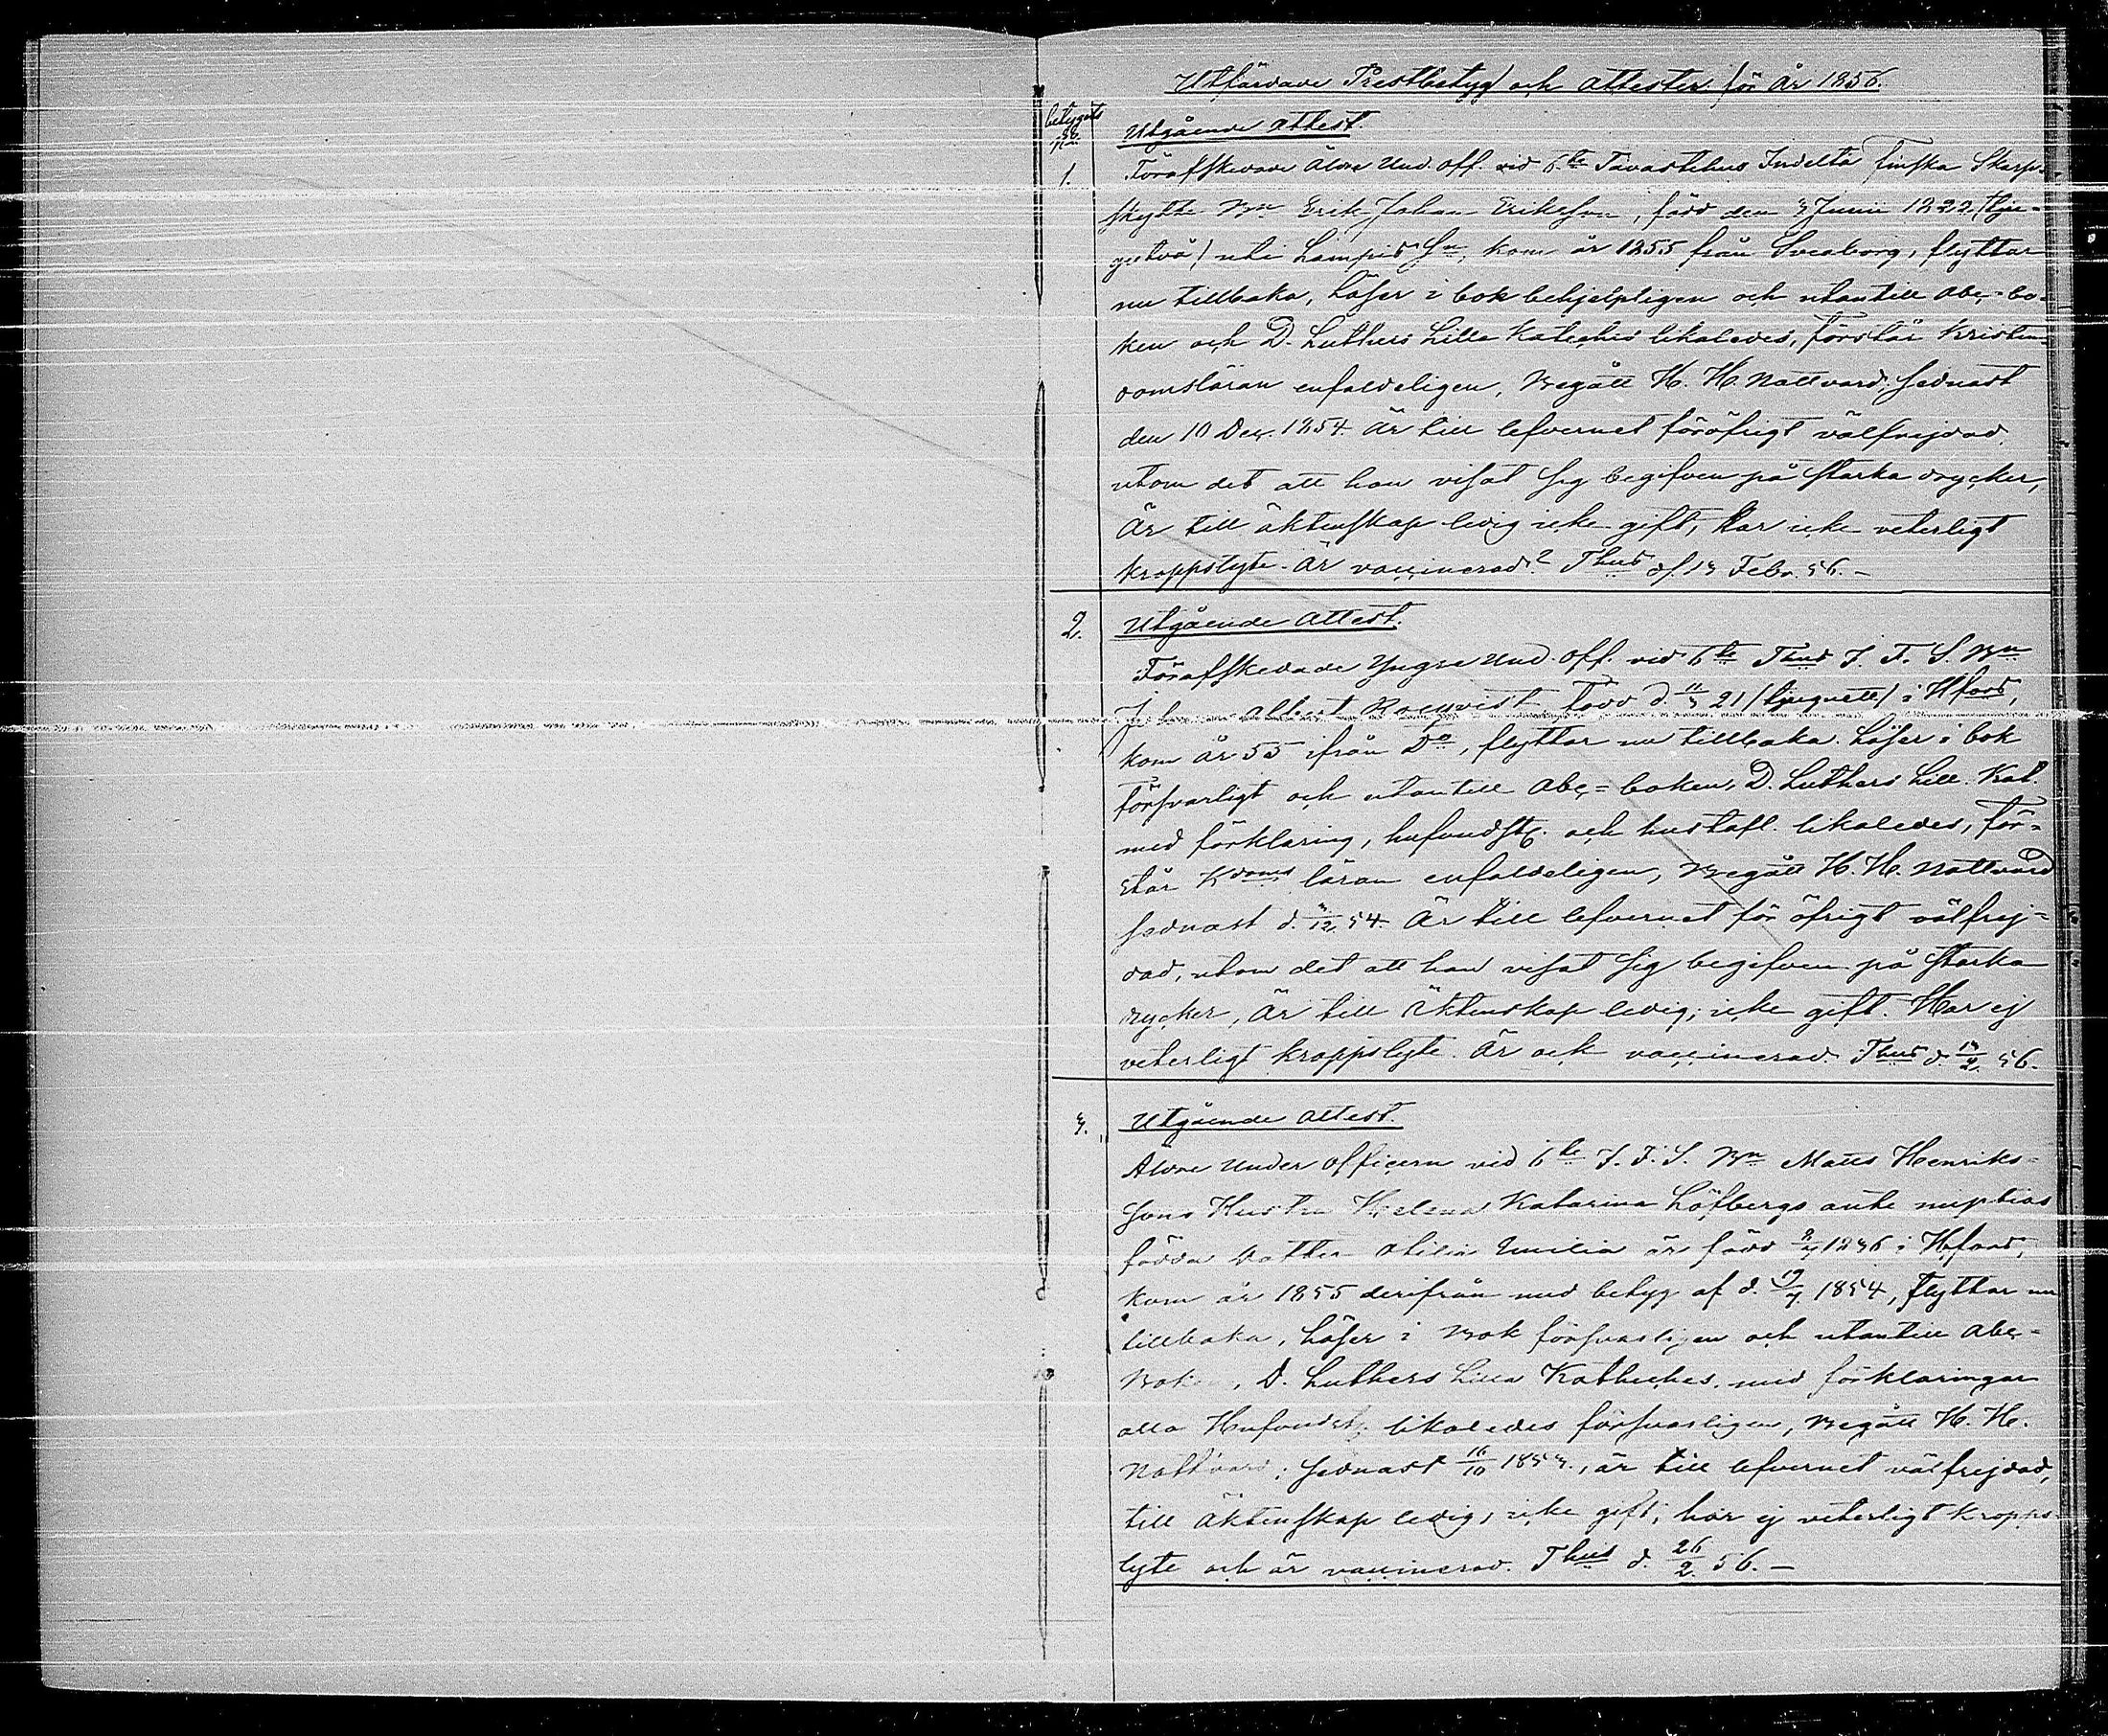 Utfärdade Prestbetyg och Attester för år 1856.
betygets
N:o
Utgående Attest.
1. Förafskedade Äldre Und. Off. vid 6:te Tavastehus Indelta Finska Skarp-
skytte B:n Erik Johan Erikson, född den 3 Junii 1822 (tju-
gutvå) uti Lampis S:n, kom år 1855 från Sveaborg, flyttar
nu tillbaka, Läser i bok behjelpligen och utantill Abc-bo-
ken och D. Luthers Lilla Kateches likaledes, förstår Kristen-
domsläran enfaldeligen, Begått H. H. Nattvard, sednast
den 10 Dec. 1854. Är till lefvernet föröfrigt välfrejdad,
utom det att han visat sig begifven på starka drycker,
Är till äktenskap ledig icke gift, har icke veterligt
kroppslyte. Är vaccinerad? Thus d. 13 Febr. 56.-
2. Utgående Attest.
Förafskedade Yngre Und. Off. vid 6:te Thus I. F. S. B:n
Johan Albert Roeqvist, född d. 11/3 21 (tjuguett) i Hfors,
kom år 55 ifrån D:o, flyttar nu tillbaka. Läser i bok
försvarligt och utantill Abc-boken, D. Luthers Lill. Kat.
med förklaring, hufvudst. och hustafl. likaledes, för-
står Kdoms läran enfaldeligen, Begått H. H. Nattvard
sednast d. 3/12 54. Är till lefvernet för öfrigt välfrej-
dad, utom det att han visat sig begifven på starka
drycker, Är till Äktenskap ledig, icke gift. Har ej
veterligt kroppslyte. Är och vaccinerad Thus d. 13/2 56.
3. Utgående Attest.
Äldre Under officern vid 6:te I. F. S. B:n Matts Henriks-
sons Hustru Helena Katarina Löfbergs ante nuptias
födda Dotter Otilia Emilia är född 1836 i Hfors,
kom år 1855 derifrån med betyg af d. 19/7 1854, flyttar nu
tillbaka, Läser i Bok försvarligen och utantill Abc-
Boken, D. Luthers Lilla Katheches. med förklaringar
alla Hufvudst. likaledes försvarligen, Begått H. H.
Nattvard; sednast 16/10 1853., är till lefvernet välfrejdad,
till Äktenskap ledig, icke gift, har ej veterligt kropps-
lyte och är vaccinerad. Thus d. 26/2 56.-